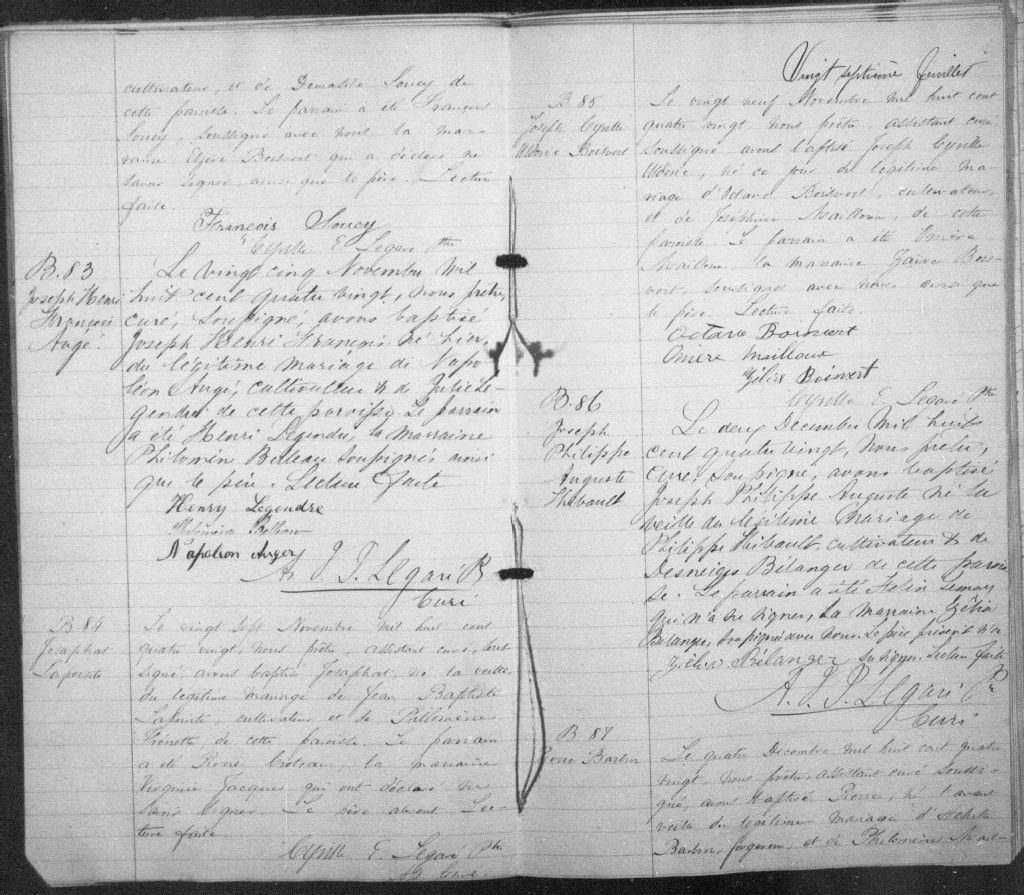 cultivateur, et de Demastile Soucy de
cette paroisse. Le parrain a été François
Soucy, soussigné avec nous, la mar-
raine Elzire Boisvert qui a déclaré ne
savoir signer, ainsi que le père. Lecture
faite.
François Soucy
Cyrille E. Legaré Ptre
B.83
Joseph Henri
François
Augé.
Le vingt cinq Novembre mil
huit cent quatre vingt, nous prêtre,
curé, soussigné, avons baptisé
Joseph Henri François né hier,
du légitime mariage de Napo
léon Augé, cultivateur & de Julie Le
gendre de cette paroisse. Le parrain
a été Henri Legendre, la marraine
Philomèn Belleau soussignés ainsi
que le père. Lecture faite
Henry Legendre
Philomène Belleau
Napoleon Auger
A. P. J. Legaré Pr
Curé
B 84
Josaphat
Lapointe
Le vingt sept Novembre mil huit cent
quatre vingt, nous prêtre, assistant curé, sous-
signé, avons baptisé Josaphat, né la veille,
du légitime mariage de Jean Baptiste
Lapointe, cultivateur et de Philomène
Frénette, de cette paroisse. Le parrain
a été Pierre Croteau, la marraine
Virginie Jacques qui ont déclaré ne
savoir signer. Le père absent. Lec-
ture faite.
Cyrille E. Legaré, Ptre
As. Curé.
Vingt septième feuillet
B 85
Joseph Cyrille
Alderie Boisvert
Le vingt neuf Novembre mil huit cent
quatre vingt, nous prêtre, assistant curé
soussigné, avons baptisé Joseph Cyrille
Alderie, né ce jour du légitime ma-
riage d'Octave Boisvert, cultivateur,
et de Josephine Mailloux, de cette
paroisse. Le parrain a été
Mailloux, la marraine Bois-
vert, soussignés avec nous ainsi que
le père. Lecture faite.
Octave Boisvert
Omere Mailloux
Boisvert
Cyrille E. Legaré Ptre
B.86
Joseph
Philippe
Auguste
Thibault
Le deux Décembre mil huit
cent quatre vingt, nous prêtre,
curé, soussigné, avons baptisé
Joseph Philippe Auguste né la
veille du légitime mariage de
Philippe Thibault, cultivateur & de
Desneiges Bélanger de cette parois
se. Le parrain a été Félix Lemay
qui n'a su signer, la marraine Zélia
Bélanger, soussignée avec nous. Le père présent n'a
Zélia Bélanger su signer. Lecture faite
A. P. J. Legaré Pr
Curé
B 87
Pierre Bartin
Le quatre Décembre mil huit cent quatre
vingt, nous prêtre, assistant curé soussi-
gné, avons baptisé Pierre, né l'avant
veille du légitime mariage d'Achille
Bartin, forgeron, et de Philomène Mail-